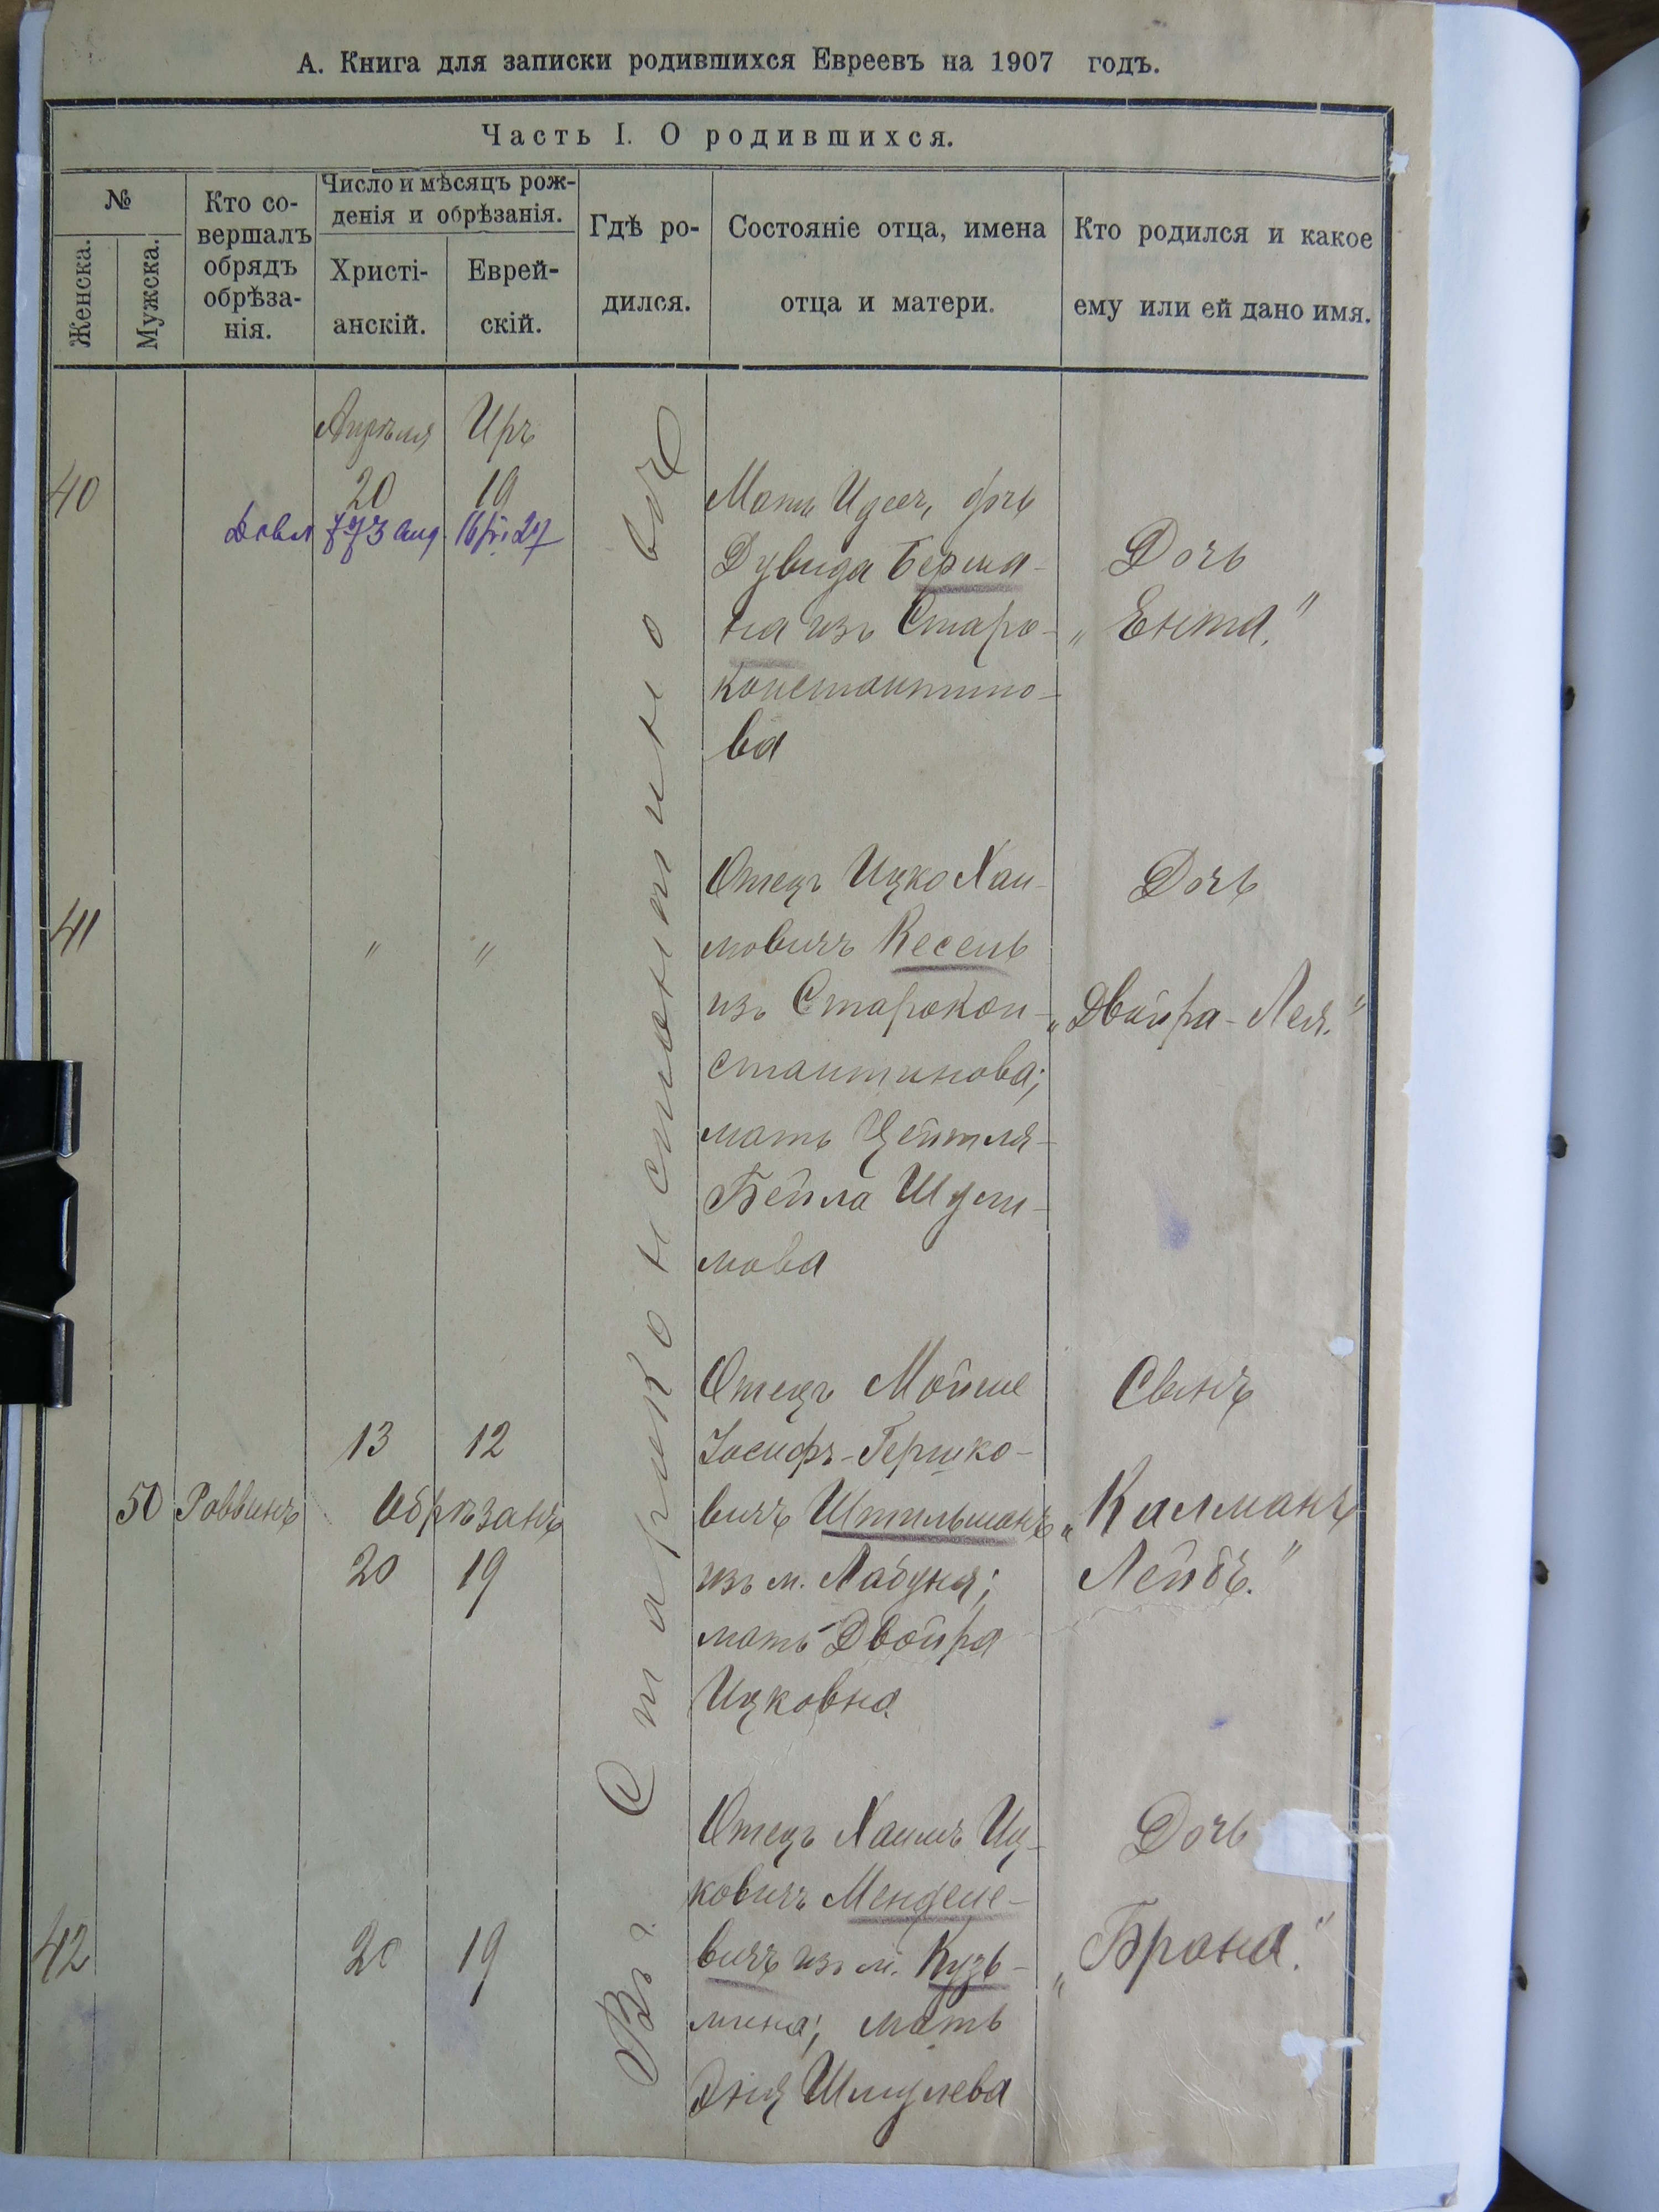 А. Книга для записки родившихся Евреевъ на 1907 годъ.
Часть I. О родившихся.
№
Женска.
Мужска.
Кто со-
вершалъ
обрядъ
обрѣза-
нія.
Число и мѣсяцъ рож-
денія и обрѣзанія.
Христі-
анскій.
Еврей-
скій.
Гдѣ ро-
дился.
Состояніе отца, имена
отца и матери.
Кто родился и какое
ему или ей дано имя.
Въ г. Староконстантиновѣ
Апрѣля Иръ
40 20 19
Мать
Дувида Берма-
на изъ Старо-
константино-
ва
Дочь
„Ента."
41 " "
Отецъ Ицко Хаи-
мовичъ Кесель
изъ Старокон-
стантинова;
мать Цейтля-
Бейла Шули-
мова
Дочь
„Двойра-Лея."
13 12
50 Раввинъ Обрѣзанъ
20 19
Отецъ Мойше
Іосифъ-Гершко-
вичъ Штильманъ
изъ м. Лабуня;
мать Двойра
Ицковна.
Сынъ
„Калманъ
Лейбъ."
42 20 19
Отецъ Хаимъ Иц-
ковичъ Менделе-
вичъ изъ м. Кузь-
мина; мать
Шмулева
Дочь
„Брана."